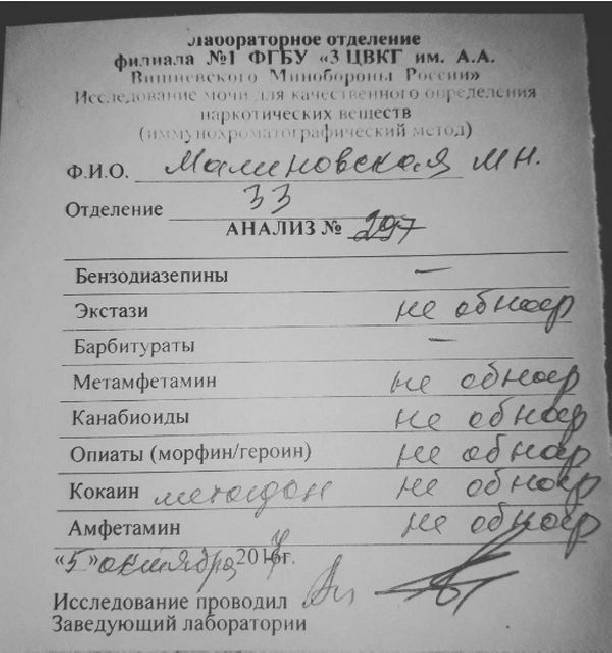 лабораторное отделение
филиала №1 ФГБУ «3 ЦВКГ им. А.А.
Вишневского Минобороны России»
Исследование мочи для качественного определения
наркотических веществ
(иммунохроматографический метод)
Ф.И.О. Малиновская М Н.
Отделение 33
АНАЛИЗ № 297
Бензодиазепины —
Экстази не обнар
Барбитураты —
Метамфетамин не обнар
Канабиоиды не обнар
Опиаты (морфин/героин) не обнар
Кокаин метадон не обнар
Амфетамин не обнар
«5» октября 2017г.
Исследование проводил
Заведующий лаборатории